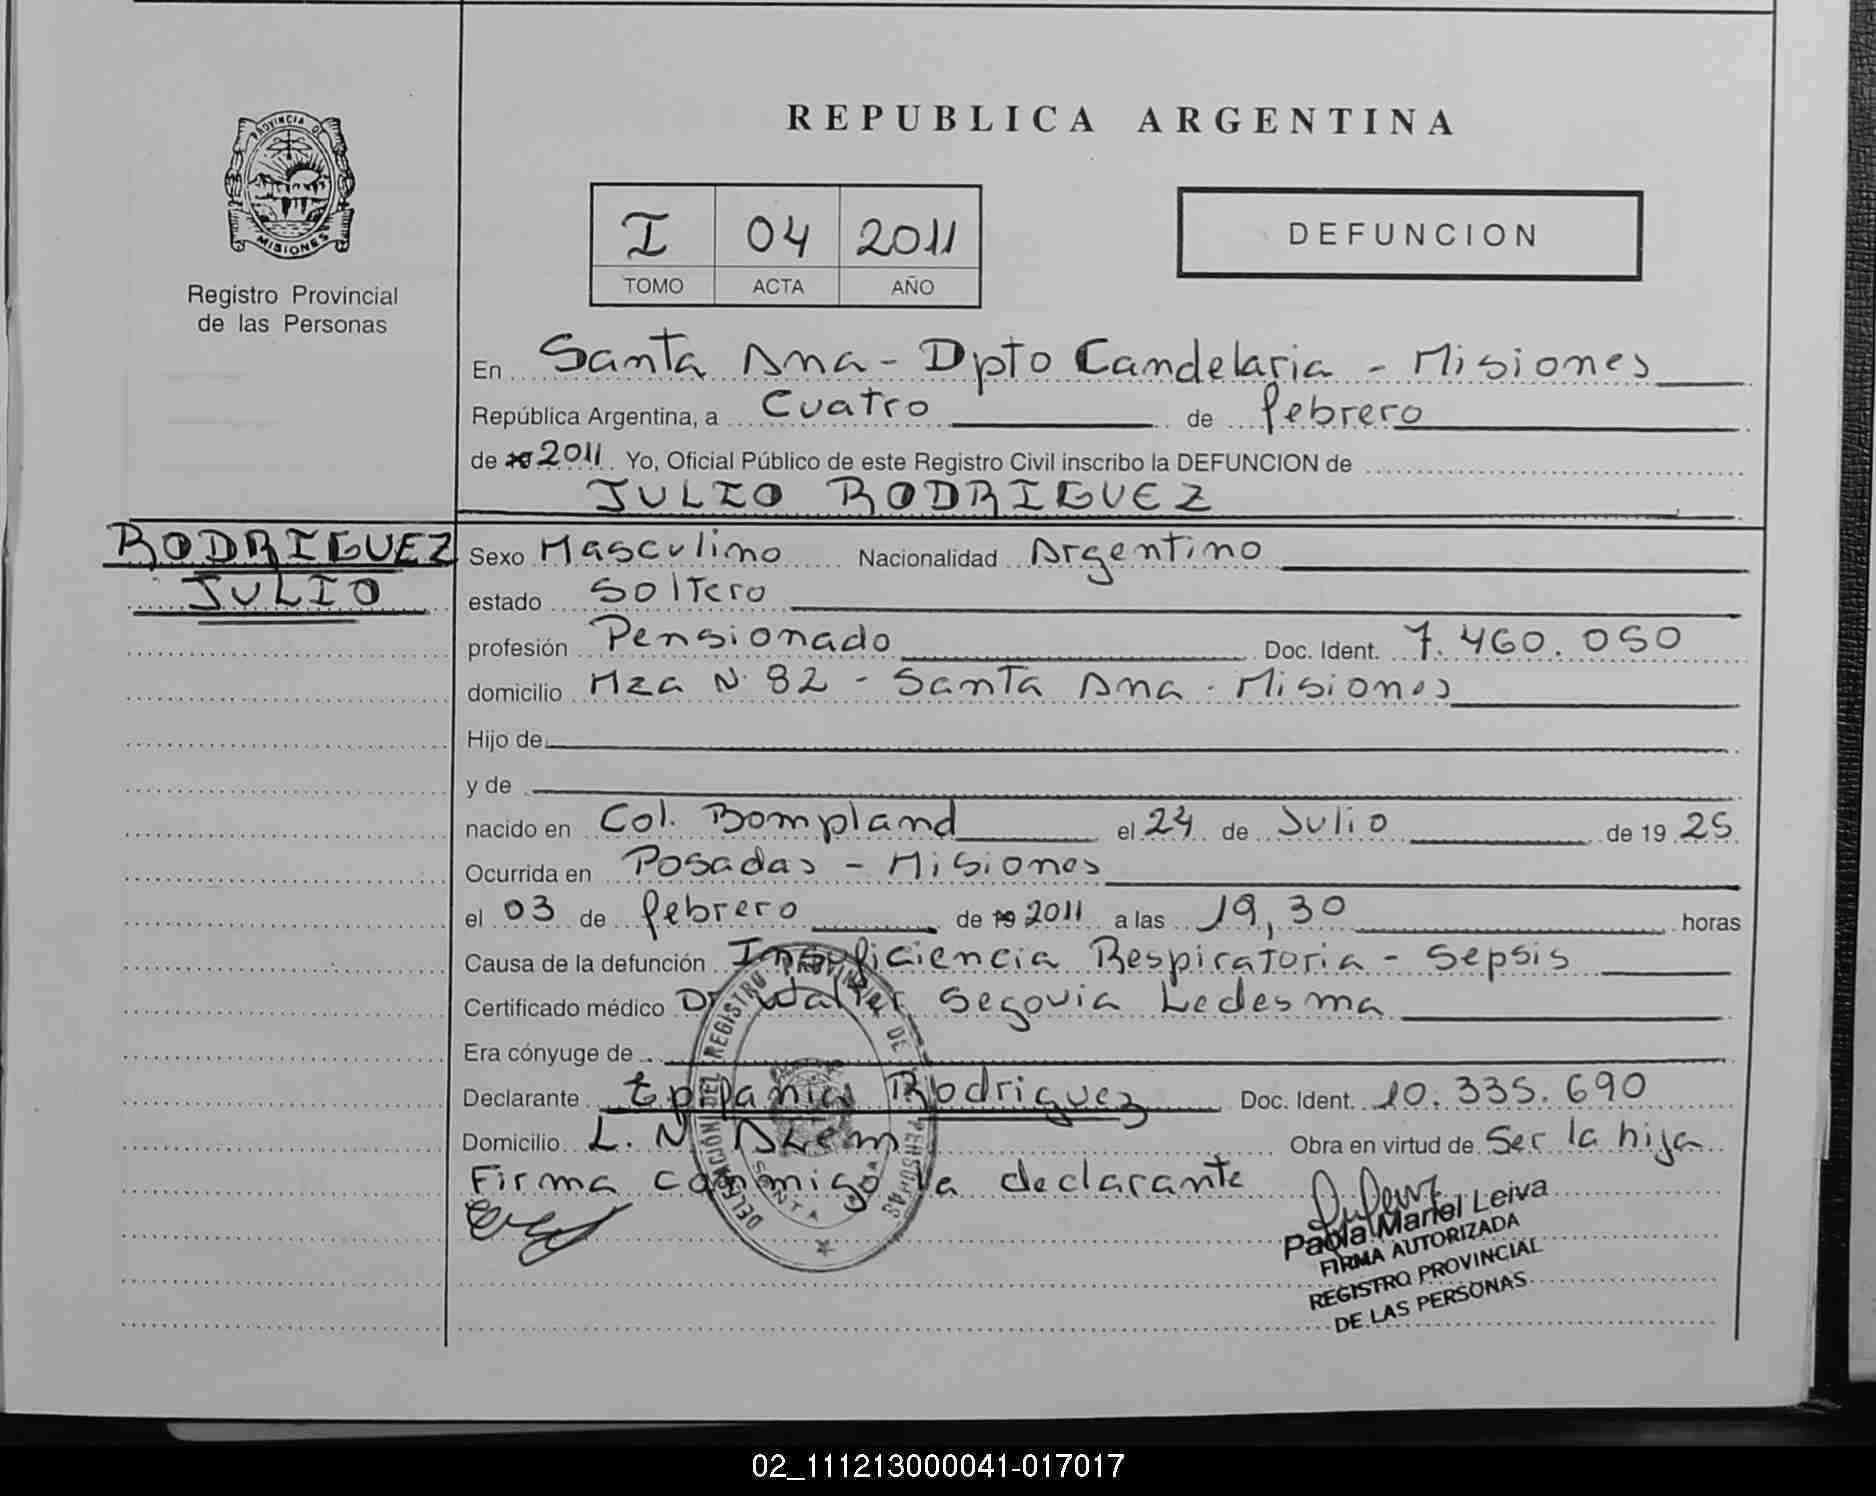 REPUBLICA ARGENTINA
PROVINCIA DE
MISIONES
Registro Provincial
de las Personas
I 04 2011
TOMO ACTA AÑO
DEFUNCION
En Santa Ana - Dpto Candelaria - Misiones
República Argentina, a Cuatro de febrero
de 19 2011 Yo, Oficial Público de este Registro Civil inscribo la DEFUNCION de
JULIO RODRIGUEZ
RODRIGUEZ
JULIO
Sexo Masculino Nacionalidad Argentino
estado Soltero
profesión Pensionado Doc. Ident. 7.460.050
domicilio Mza N. 82 - Santa Ana - Misiones
Hijo de
y de
nacido en Col. Bompland el 24 de Julio de 19 25
Ocurrida en Posadas - Misiones
el 03 de febrero de 19 2011 a las 19,30 horas
Causa de la defunción Insuficiencia Respiratoria - Sepsis
Certificado médico Dr Walter Segovia Ledesma
Era cónyuge de
Declarante Epifania Rodriguez Doc. Ident. 10.335.690
Domicilio L. N. ALem Obra en virtud de Ser la hija
Firma conmigo la declarante
DELEGACIÓN DEL REGISTRO PROVINCIAL DE LAS PERSONAS
SANTA ANA
Paola Mariel Leiva
FIRMA AUTORIZADA
REGISTRO PROVINCIAL
DE LAS PERSONAS
02_111213000041-017017